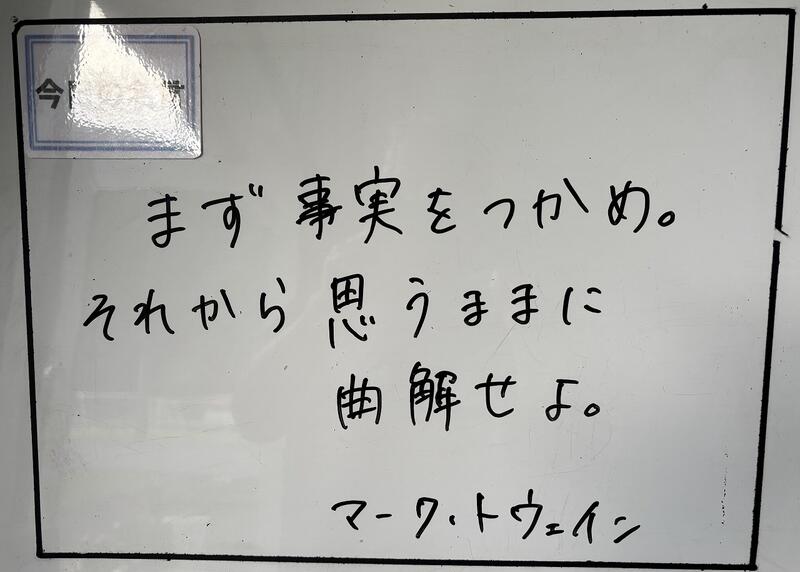 まず事実をつかめ。
それから思うままに
曲解せよ。
マーク・トウェイン